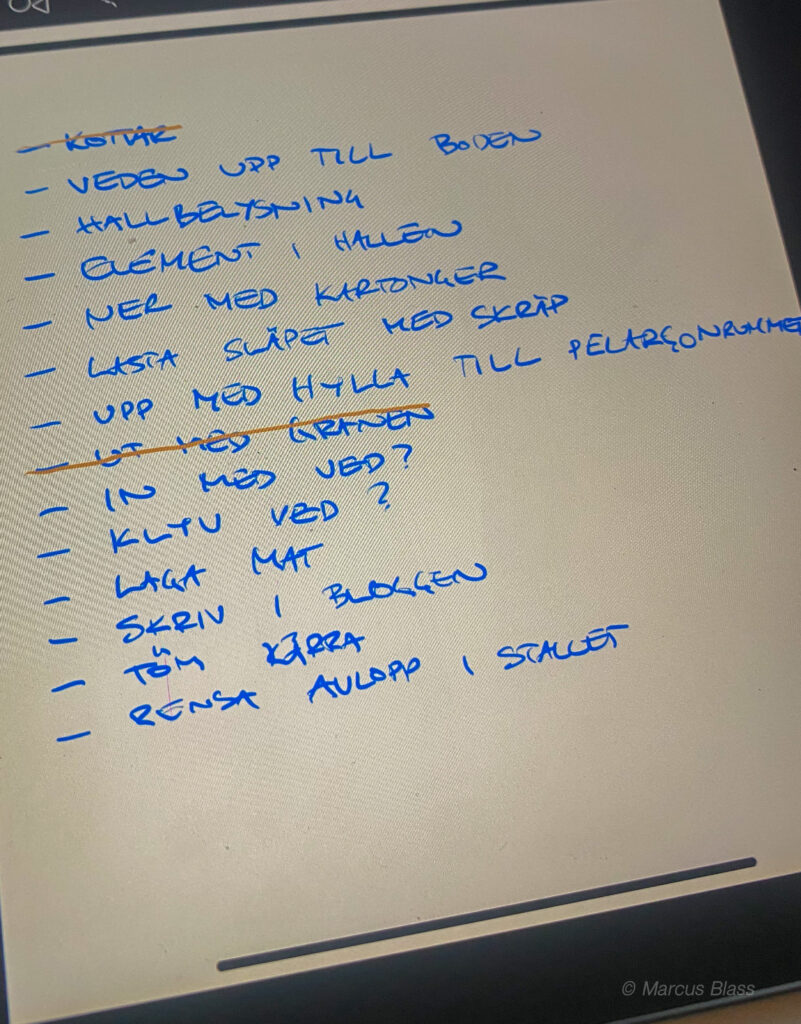 - VEDEN UPP TILL BODEN
- HALLBELYSNING
- ELEMENT I HALLEN
- NER MED KARTONGER
- LASTA SLÄPET MED SKRÄP
- UPP MED HYLLA TILL PELARGONRUMME
- UT MED GRANEN
- IN MED VED?
- KLYV VED?
- LAGA MAT
- SKRIV I BLOGGEN
- TÖM KÄRRA
- RENSA AVLOPP I STALLET
© Marcus Blass